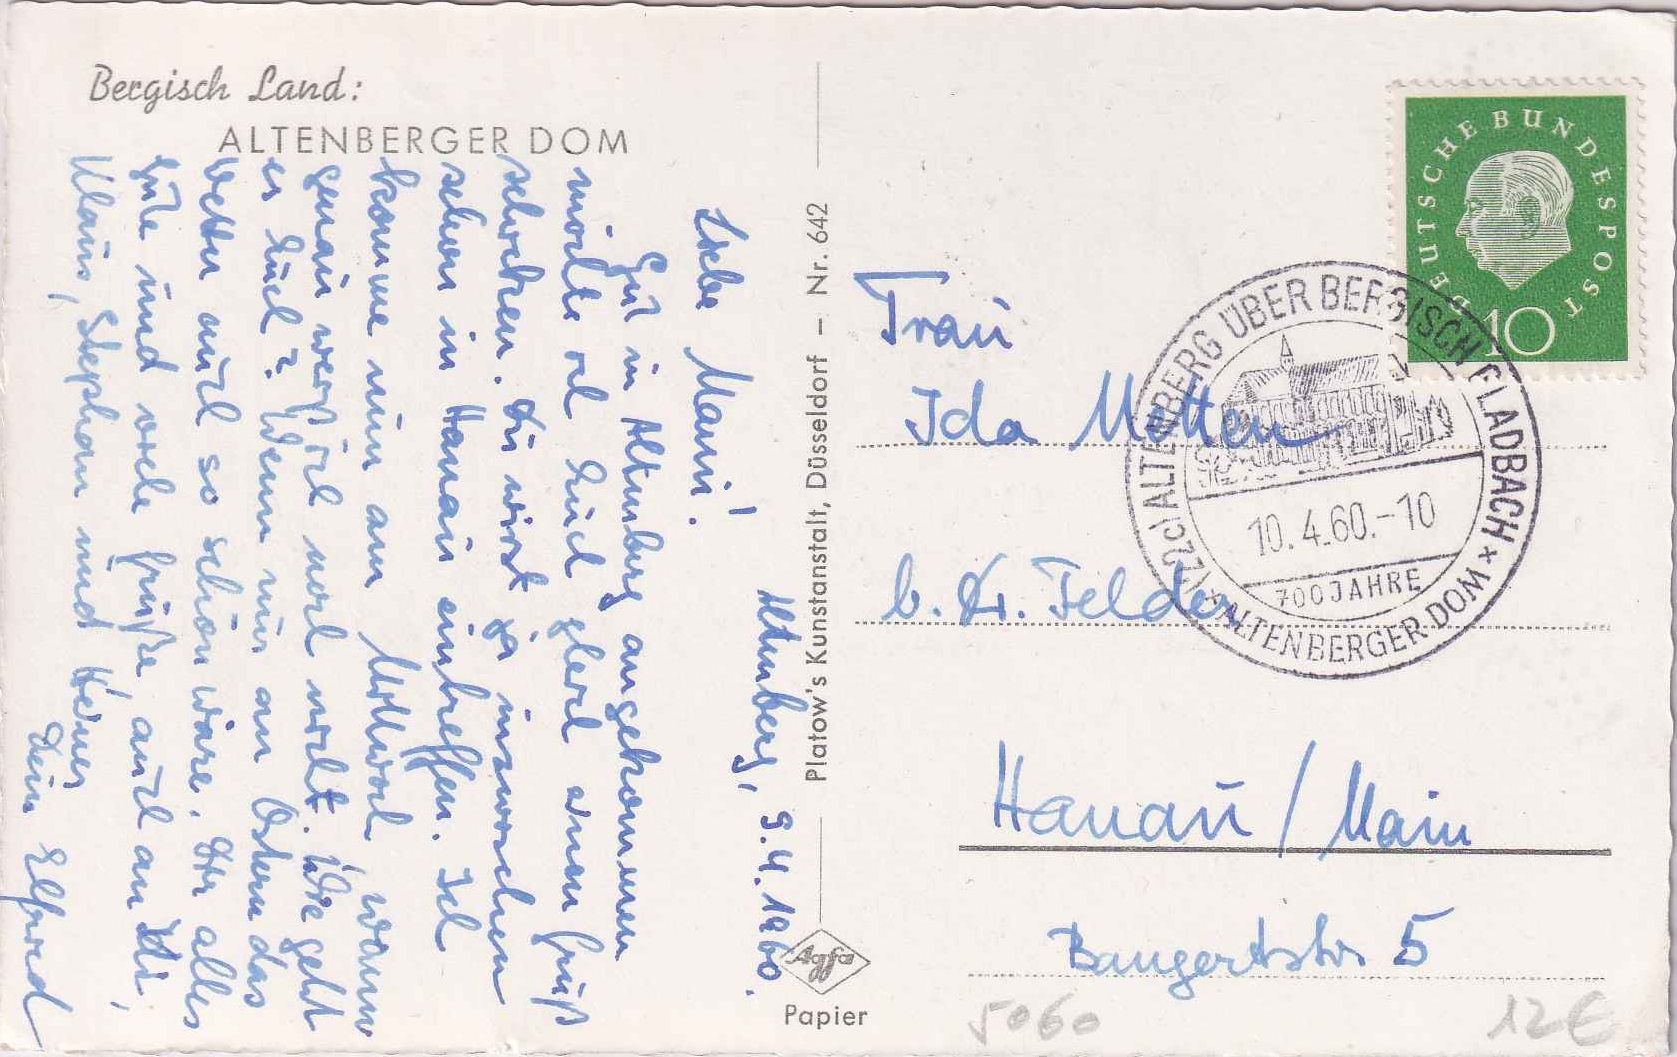 Bergisch Land:
ALTENBERGER DOM
Altenberg, 9.4.1960.
Liebe Mami!
Gut in Altenberg angekommen
möchte ich Euch gleich einen Gruß
schicken. Du wirst ja inzwischen
schon in Hanau eintreffen. Ich
komme nun am Mittwoch, wann
genau weiß ich noch nicht. Wie geht
es Euch? Wenn nur an Ostern das
Wetter auch so schön wäre. Dir alles
Gute und viele Grüße, auch an
Klaus, Stephan und Heiner
Dein
Platow's Kunstanstalt, Düsseldorf – Nr. 642
Agfa
Papier
DEUTSCHE BUNDESPOST
10
(22c) ALTENBERG ÜBER BERGISCH GLADBACH
10.4.60.-10
700 JAHRE
* ALTENBERGER DOM *
Frau
Ida
b. Dr. Felder
Hanau / Main
Bangertstr 5
5060
12€